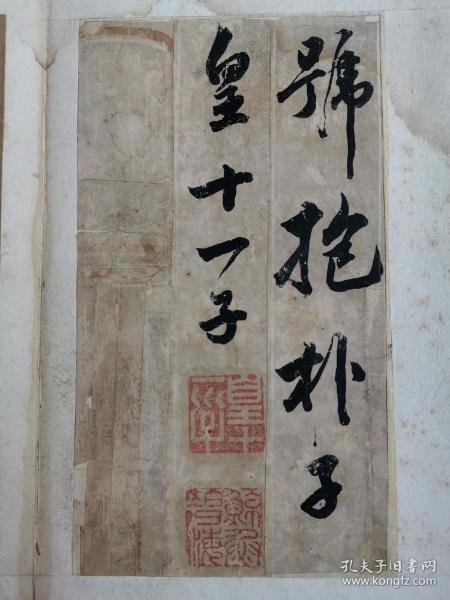 號抱朴子
皇十一子
孔夫子旧书网
www.kongfz.com